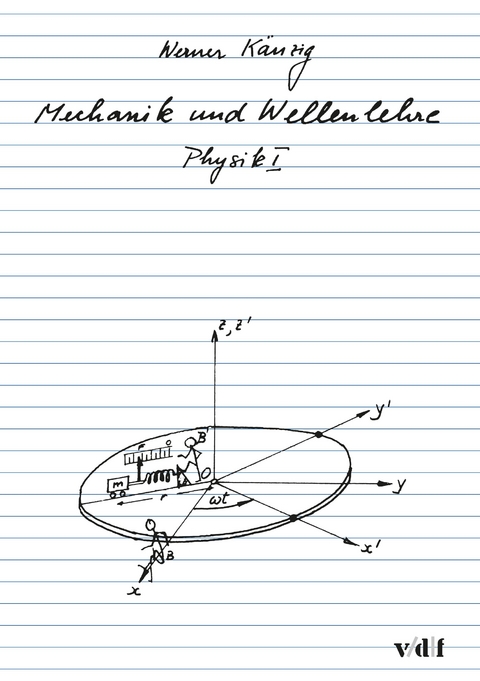 Werner Känzig
Mechanik und Wellenlehre
Physik I
z, z'
y'
F
B'
m
O
y
r
ωt
x'
B
x
v/d|f